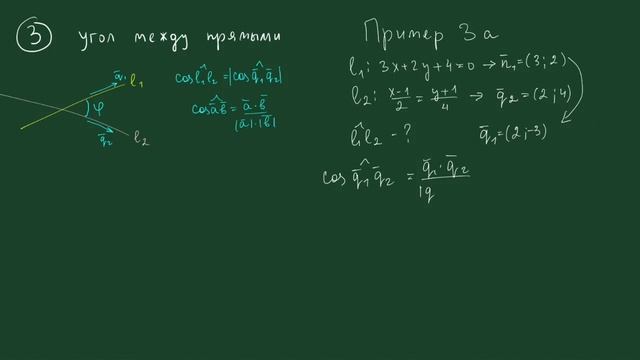 3 угол между прямыми
a̅₁ l₁
φ
q̅₂ l₂
cos l₁^l₂ = |cos q̅₁^q̅₂|
cos a̅^b̅ = a̅·b̅ / |a̅|·|b̅|
Пример 3а
l₁: 3x+2y+4=0 → n̅₁=(3;2)
l₂: x-1/2 = y+1/4 → q̅₂=(2;4)
l₁^l₂ - ? q̅₁=(2;-3)
cos q̅₁^q̅₂ = q̅₁·q̅₂ / |q